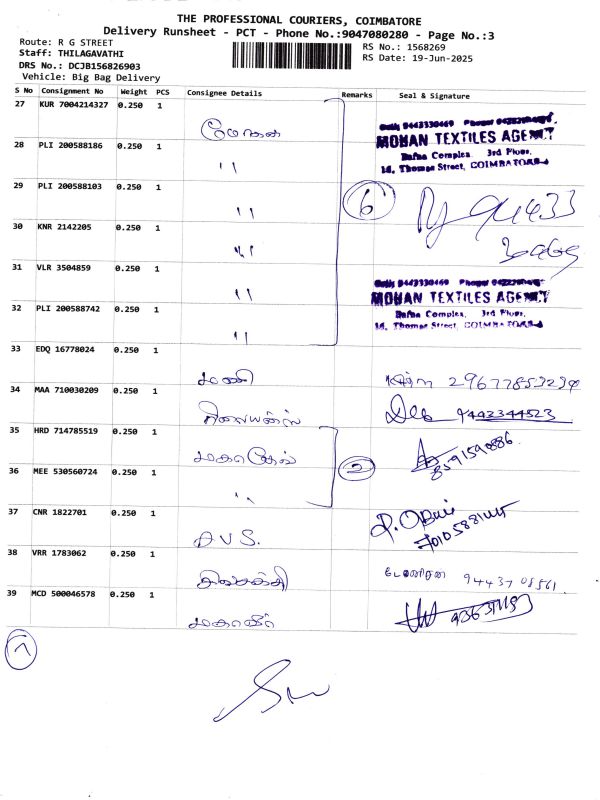 THE PROFESSIONAL COURIERS, COIMBATORE
Delivery Runsheet - PCT - Phone No.:9047080280 - Page No.:3
Route: R G STREET
RS No.: 1568269
Staff: THILAGAVATHI
RS Date: 19-Jun-2025
DRS No.: DCJB156826903
Vehicle: Big Bag Delivery
S No Consignment No Weight PCS Consignee Details Remarks Seal & Signature
27 KUR 7004214327 0.250 1
MOHAN TEXTILES AGENCY
Rafna Complex, 3rd Floor,
Thomas Street, COIMBATORE-1
28 PLI 200588186 0.250 1 ''
29 PLI 200588103 0.250 1 ''
6
94433
30469
30 KNR 2142205 0.250 1 ''
31 VLR 3504859 0.250 1 ''
MOHAN TEXTILES AGENCY
Rafna Complex, 3rd Floor,
Thomas Street, COIMBATORE-1
32 PLI 200588742 0.250 1 ''
33 EDQ 16778024 0.250 1 மணி
34 MAA 710030209 0.250 1 ரிலையன்ஸ் 9442344523
35 HRD 714785519 0.250 1
2
36 MEE 530560724 0.250 1 ''
37 CNR 1822701 0.250 1 A V S.
38 VRR 1783062 0.250 1
39 MCD 500046578 0.250 1 மகாவீர்